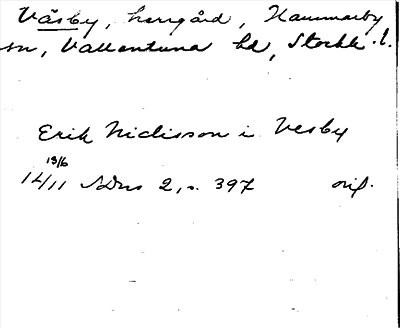 Väsby, herrgård, Hammarby
sn, Vallentuna hd, Stockh. l.
Erik Niclisson i Vesby
13/6
14/11 SDns 2, s. 397 orig.